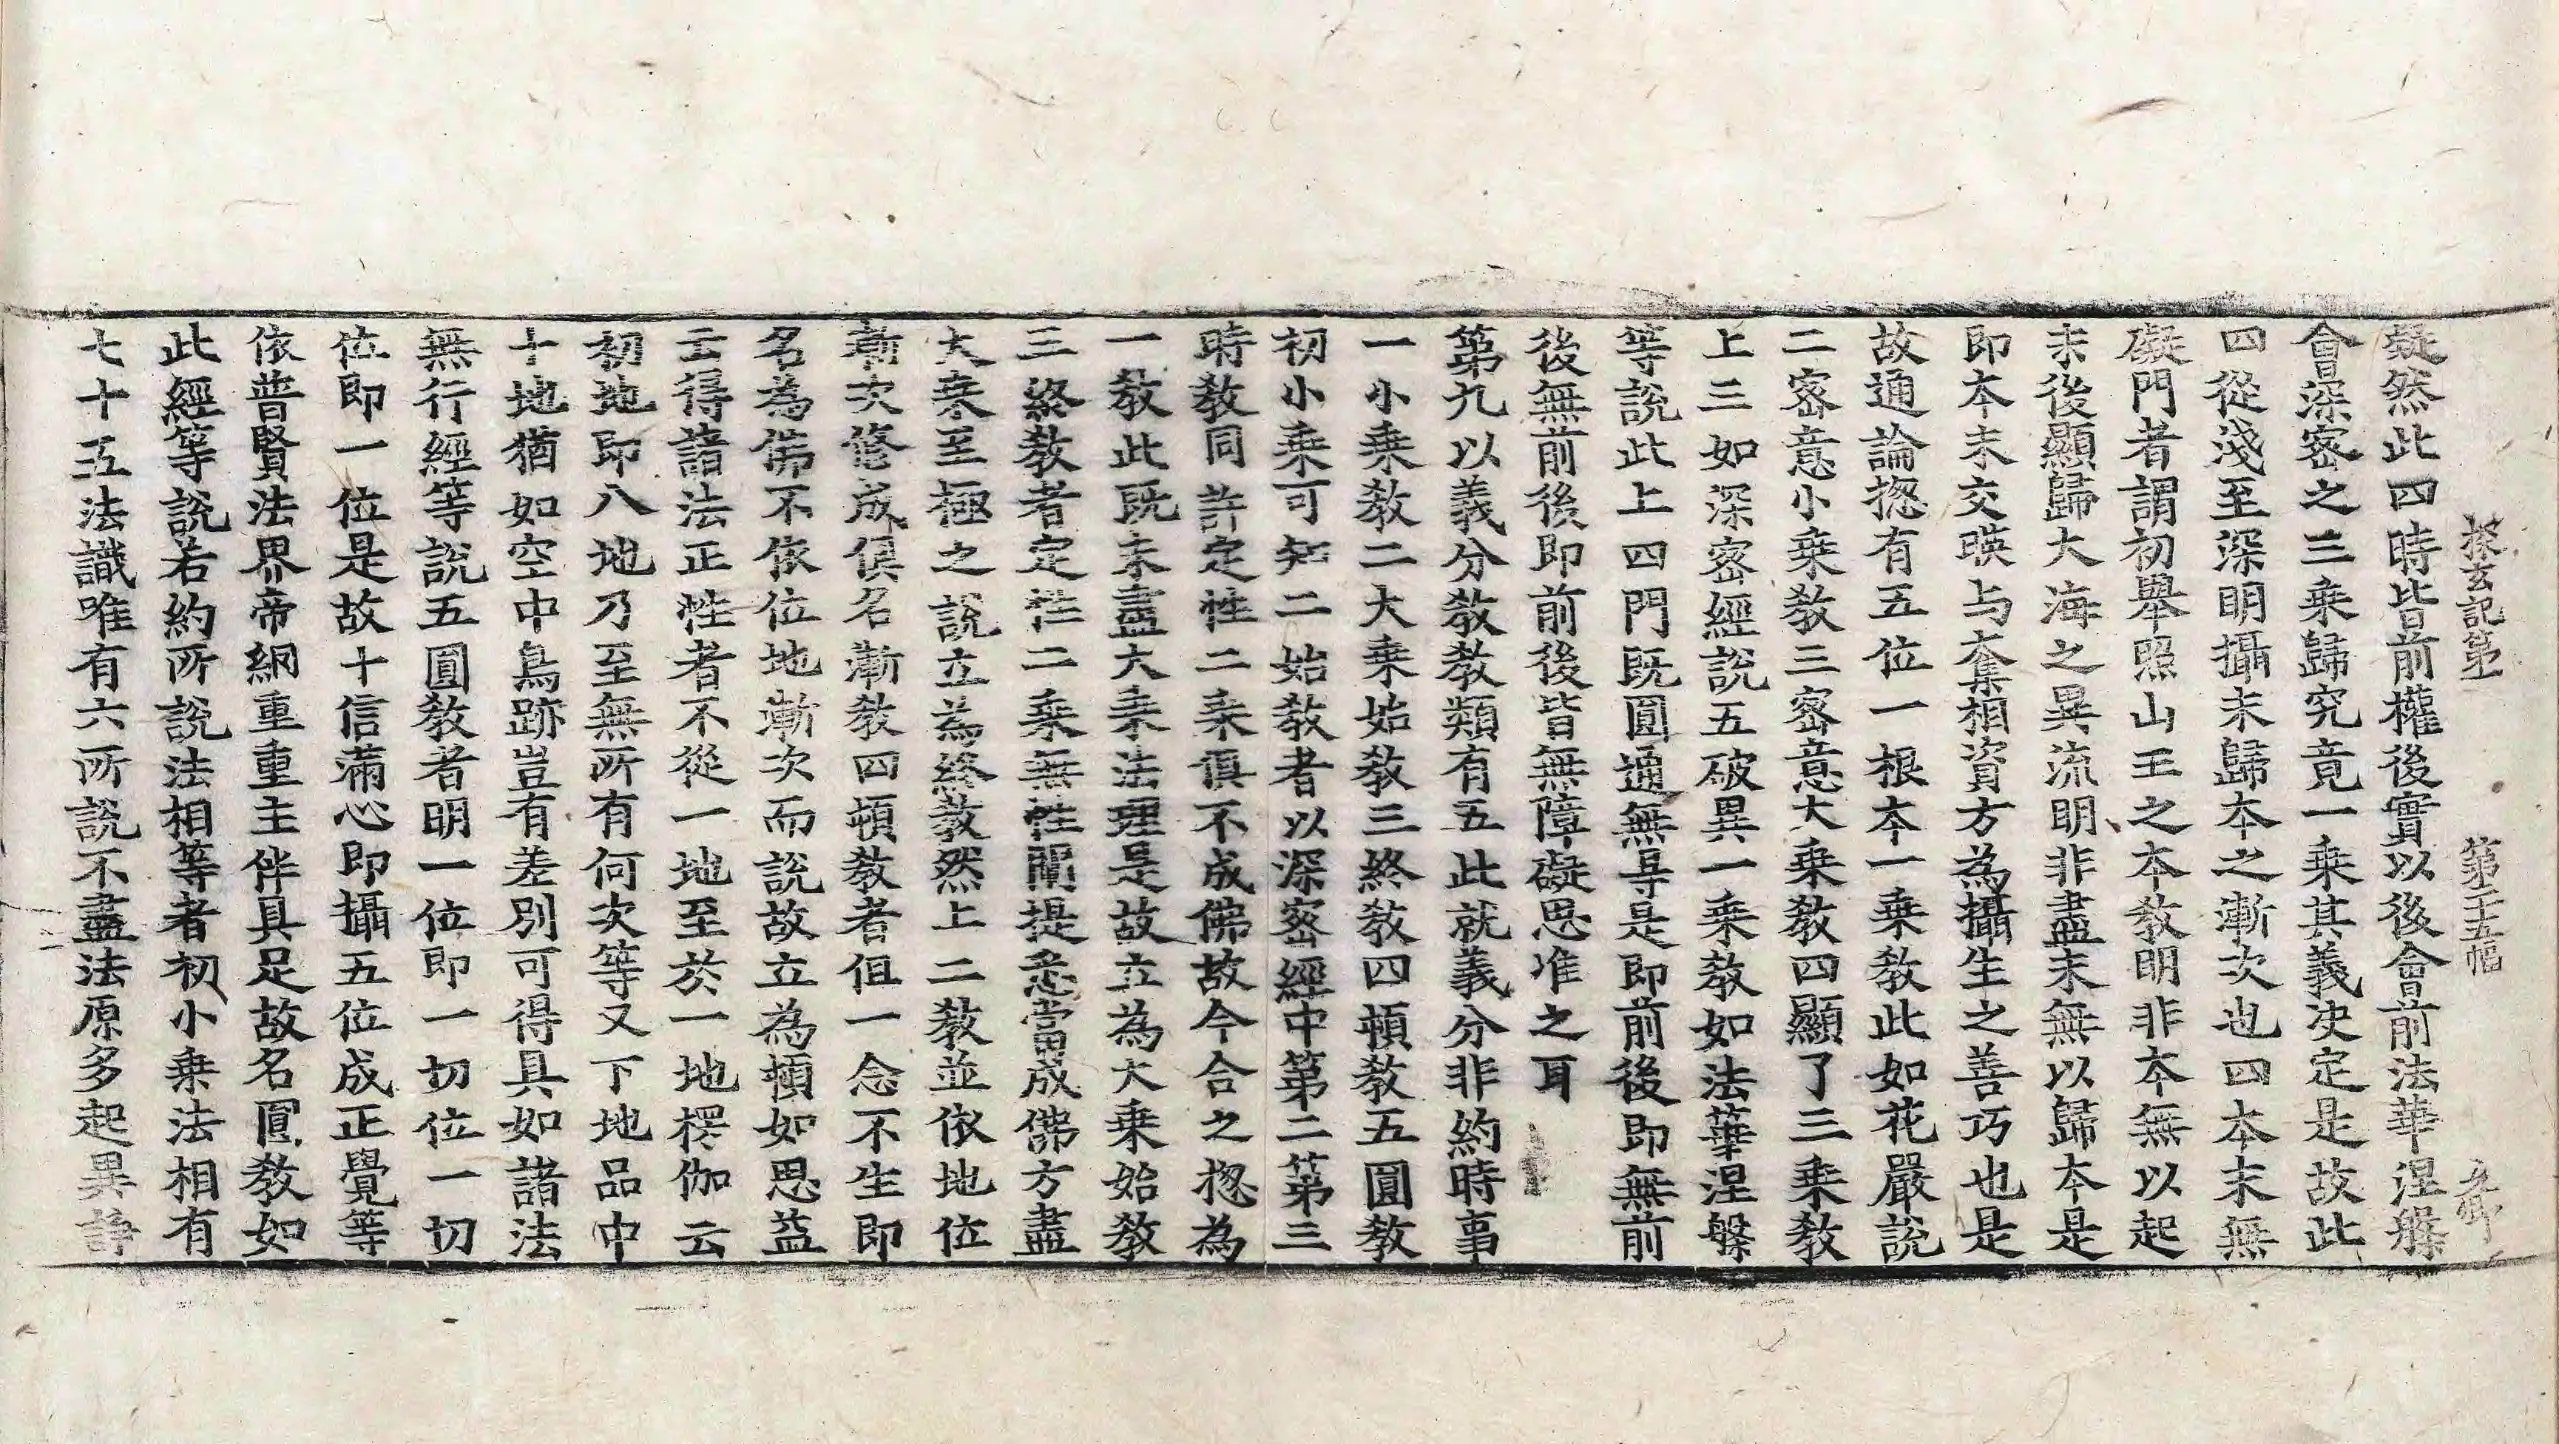 探玄記第一 第二十五幅
礙然此四時皆前權後實以後會前法華涅槃
會深密之三乗歸究竟一乗其義決定是故此
四從淺至深明攝末歸本之漸次也四本末無
礙門者謂初舉照山王之本教明非本無以起
末後顯歸大海之異流明非盡末無以歸本是
即本末交暎与奪相資方為攝生之善巧也是
故通論揔有五位一根本一乗教此如花嚴說
二密意小乗教三密意大乗教四顯了三乗教
上三如深密經說五破異一乗教如法華涅槃
等說此上四門既圓通無㝵是即前後即無前
後無前後即前後皆無障礙思准之耳
第九以義分教教類有五此就義分非約時事
一小乗教二大乗始教三終教四頓教五圓教
初小乗可知二始教者以深密經中第二第三
時教同許定性二乗俱不成佛故今合之揔為
一教此既未盡大乗法理是故立為大乗始教
三終教者定性二乗無性闡提悉當成佛方盡
大乗至極之說立為終教然上二教並依地位
漸次修成俱名漸教四頓教者但一念不生即
名為佛不依位地漸次而說故立為頓如思益
云得諸法正性者不從一地至於一地楞伽云
初地即八地乃至無所有何次等又下地品中
十地猶如空中鳥跡豈有差別可得具如諸法
無行經等說五圓教者明一位即一切位一切
位即一位是故十信滿心即攝五位成正覺等
依普賢法界帝網重重主伴具足故名圓教如
此經等說若約所說法相等者初小乗法相有
七十五法識唯有六所說不盡法原多起異諍